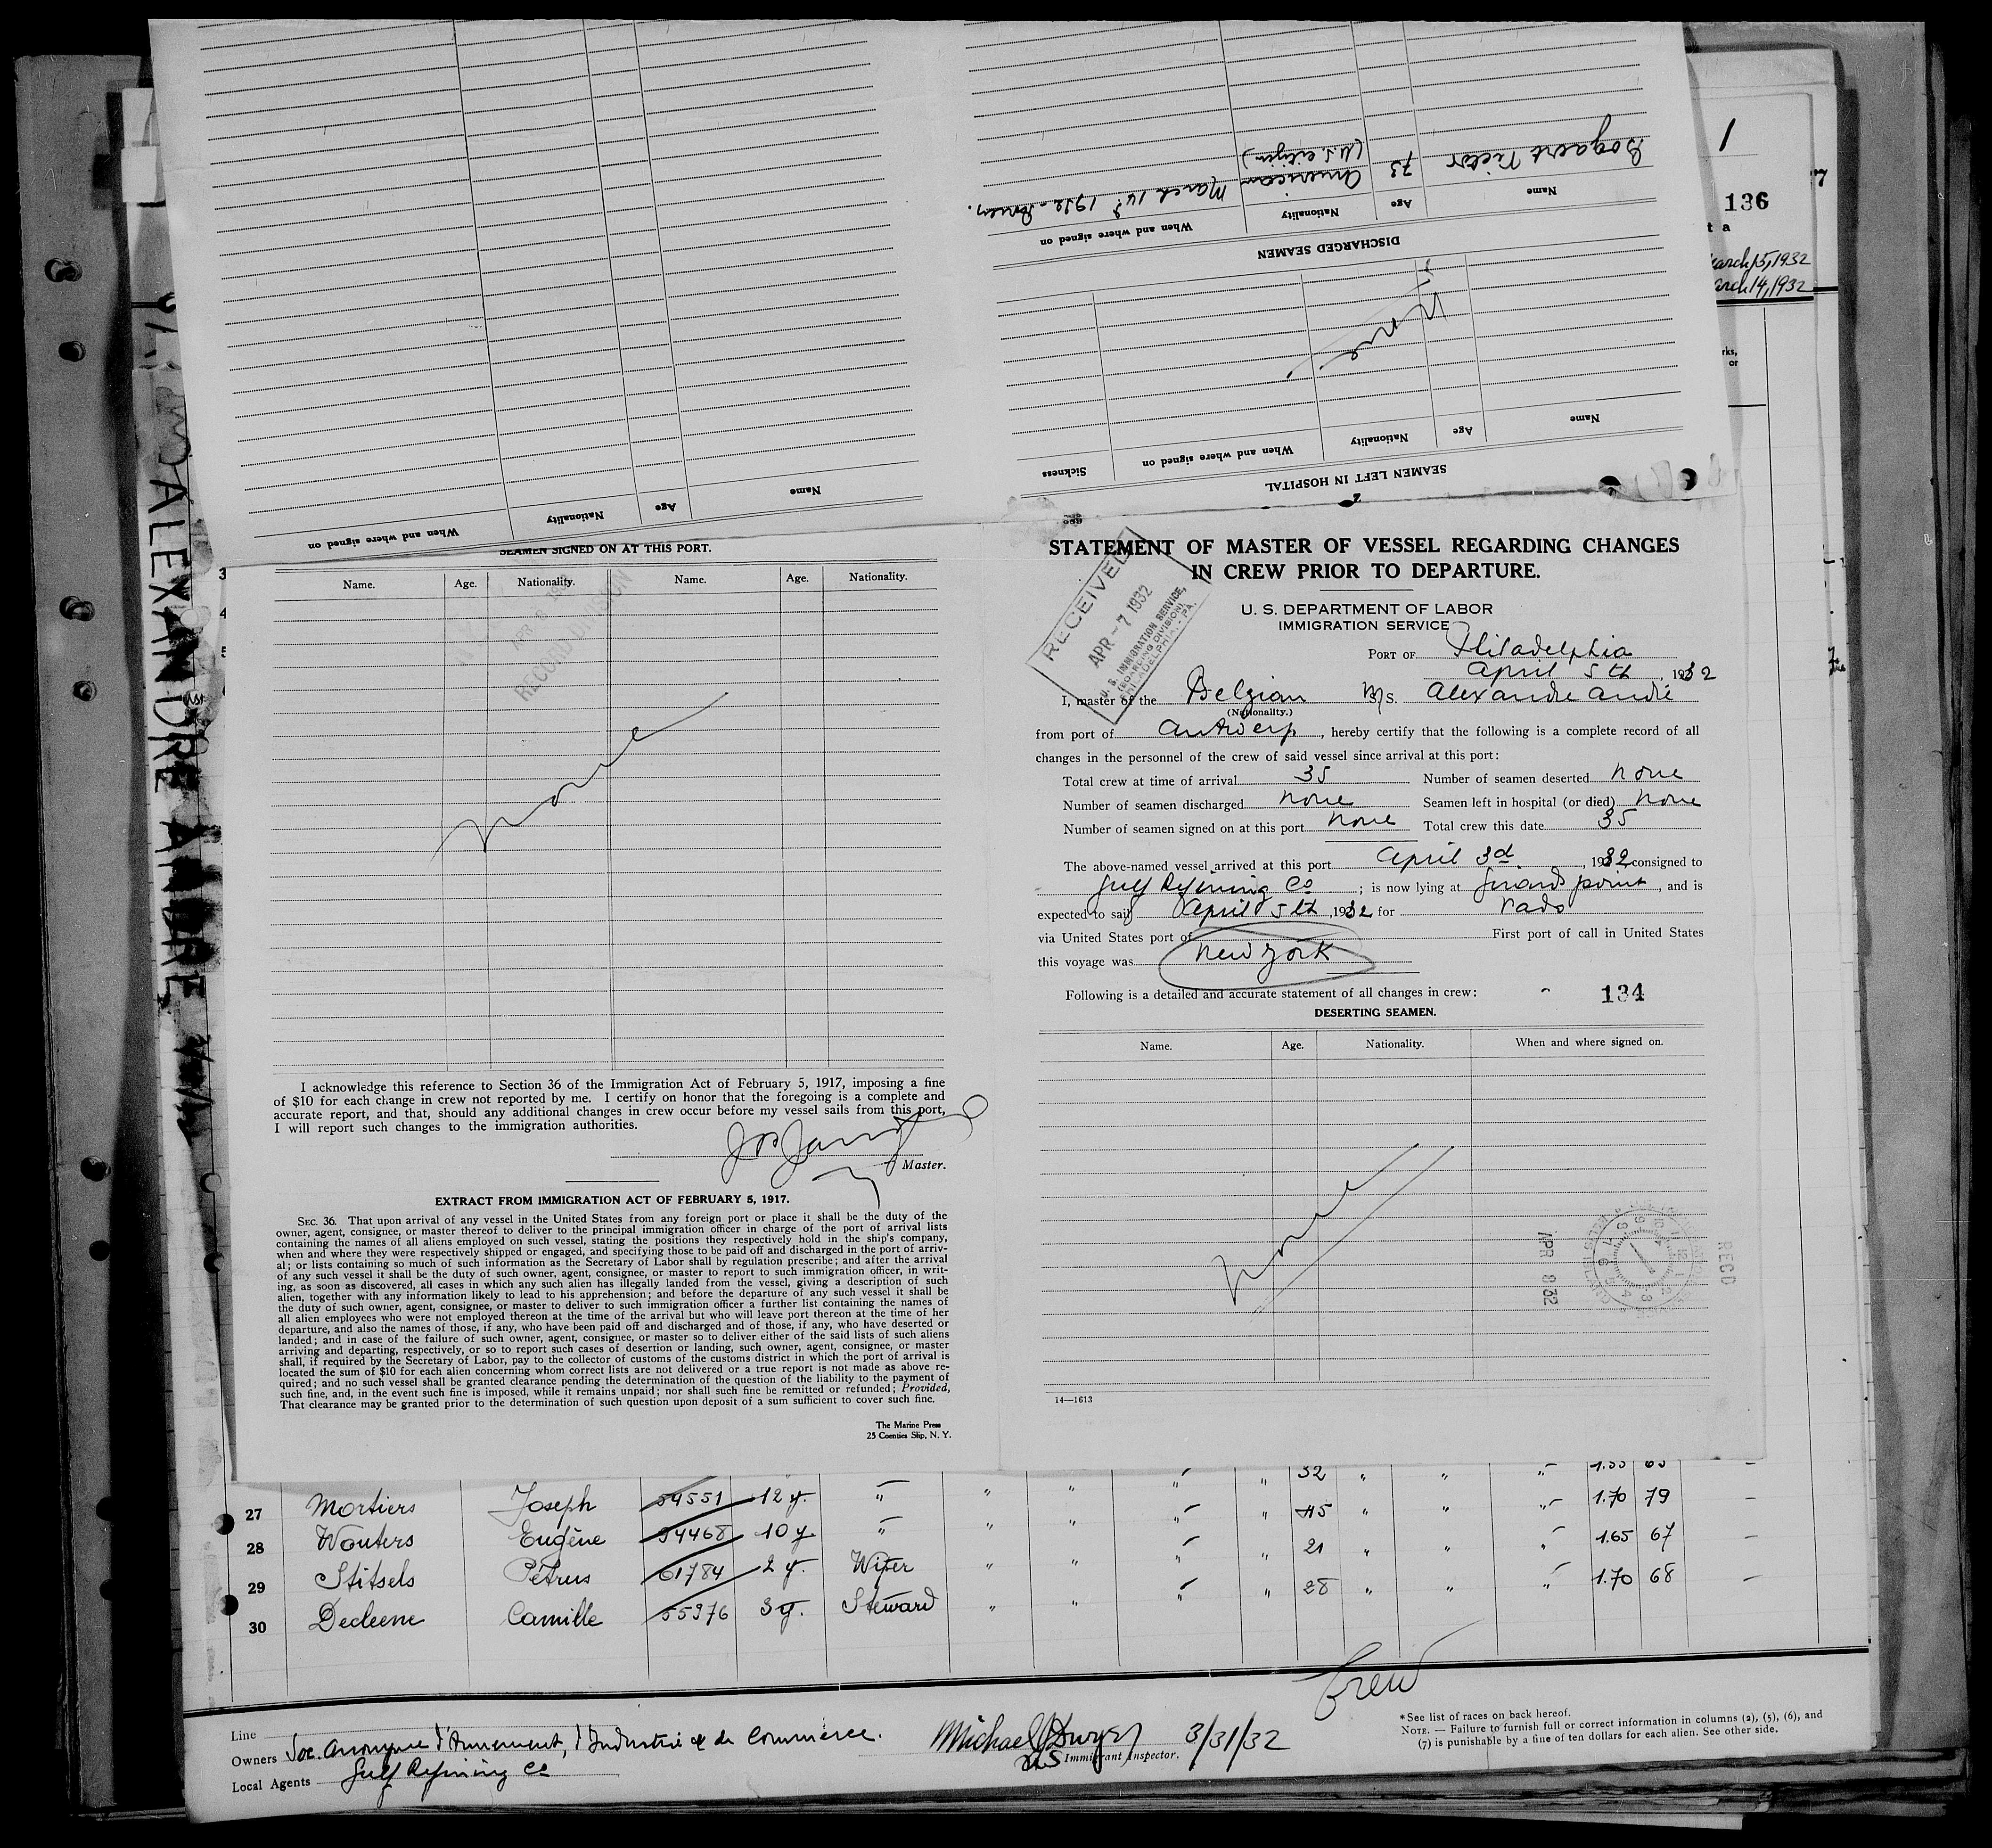 When and where signed on Nationality Age Name
SEAMEN LEFT IN HOSPITAL
Name Age Nationality When and where signed on Sickness
None
DISCHARGED SEAMEN
Name Age Nationality When and where signed on
Bogaert Victor 73 American March 14th 1932
(U.S. citizen)
1
136
t a
March 15, 1932
March 14, 1932
rks,
or
ALEXANDRE ANDRE
SEAMEN SIGNED ON AT THIS PORT.
Name. Age. Nationality. Name. Age. Nationality.
RECORD DIVISION
None
I acknowledge this reference to Section 36 of the Immigration Act of February 5, 1917, imposing a fine
of $10 for each change in crew not reported by me. I certify on honor that the foregoing is a complete and
accurate report, and that, should any additional changes in crew occur before my vessel sails from this port,
I will report such changes to the immigration authorities.
Master.
EXTRACT FROM IMMIGRATION ACT OF FEBRUARY 5, 1917.
SEC. 36. That upon arrival of any vessel in the United States from any foreign port or place it shall be the duty of the
owner, agent, consignee, or master thereof to deliver to the principal immigration officer in charge of the port of arrival lists
containing the names of all aliens employed on such vessel, stating the positions they respectively hold in the ship's company,
when and where they were respectively shipped or engaged, and specifying those to be paid off and discharged in the port of arriv-
al; or lists containing so much of such information as the Secretary of Labor shall by regulation prescribe; and after the arrival
of any such vessel it shall be the duty of such owner, agent, consignee, or master to report to such immigration officer, in writ-
ing, as soon as discovered, all cases in which any such alien has illegally landed from the vessel, giving a description of such
alien, together with any information likely to lead to his apprehension; and before the departure of any such vessel it shall be
the duty of such owner, agent, consignee, or master to deliver to such immigration officer a further list containing the names of
all alien employees who were not employed thereon at the time of the arrival but who will leave port thereon at the time of her
departure, and also the names of those, if any, who have been paid off and discharged and of those, if any, who have deserted or
landed; and in case of the failure of such owner, agent, consignee, or master so to deliver either of the said lists of such aliens
arriving and departing, respectively, or so to report such cases of desertion or landing, such owner, agent, consignee, or master
shall, if required by the Secretary of Labor, pay to the collector of customs of the customs district in which the port of arrival is
located the sum of $10 for each alien concerning whom correct lists are not delivered or a true report is not made as above re-
quired; and no such vessel shall be granted clearance pending the determination of the question of the liability to the payment of
such fine, and, in the event such fine is imposed, while it remains unpaid; nor shall such fine be remitted or refunded; Provided,
That clearance may be granted prior to the determination of such question upon deposit of a sum sufficient to cover such fine.
The Marine Press
25 Coenties Slip, N. Y.
STATEMENT OF MASTER OF VESSEL REGARDING CHANGES
IN CREW PRIOR TO DEPARTURE.
RECEIVED
APR - 7 1932
U. S. IMMIGRATION SERVICE,
(BOARDING DIVISION)
PHILADELPHIA, PA.
U. S. DEPARTMENT OF LABOR
IMMIGRATION SERVICE
PORT OF Philadelphia
April 5th, 1932
I, master of the Belgian M/S. Alexandre André
(Nationality.)
from port of Antwerp, hereby certify that the following is a complete record of all
changes in the personnel of the crew of said vessel since arrival at this port:
Total crew at time of arrival 35 Number of seamen deserted none
Number of seamen discharged none Seamen left in hospital (or died) none
Number of seamen signed on at this port none Total crew this date 35
The above-named vessel arrived at this port April 3d, 1932 consigned to
Gulf Refining Co; is now lying at Girard point, and is
expected to sail April 5th, 1932 for Vado
via United States port of First port of call in United States
this voyage was New York
Following is a detailed and accurate statement of all changes in crew: 134
DESERTING SEAMEN.
Name. Age. Nationality. When and where signed on.
None
APR 8 32
RECD
14—1613
32 " " " 1.55 65 -
27 Mortiers Joseph 54551 12 y. " " " " " 45 " " " 1.70 79 -
28 Wouters Eugène 54468 10 y. " " " " " 21 " " " 1.65 67
29 Stitsels Petrus 61784 2 y. Wiper " " " " 28 " " " 1.70 68 -
30 Decleene Camille 55376 3 y. Steward " "
Crew
Line
Owners Soc. Anonyme d'Armement, d'Industrie & de Commerce.
Local Agents Gulf Refining Co
Michael J Dwyer 3/31/32
US Immigrant Inspector.
*See list of races on back hereof.
NOTE. — Failure to furnish full or correct information in columns (2), (5), (6), and
(7) is punishable by a fine of ten dollars for each alien. See other side.